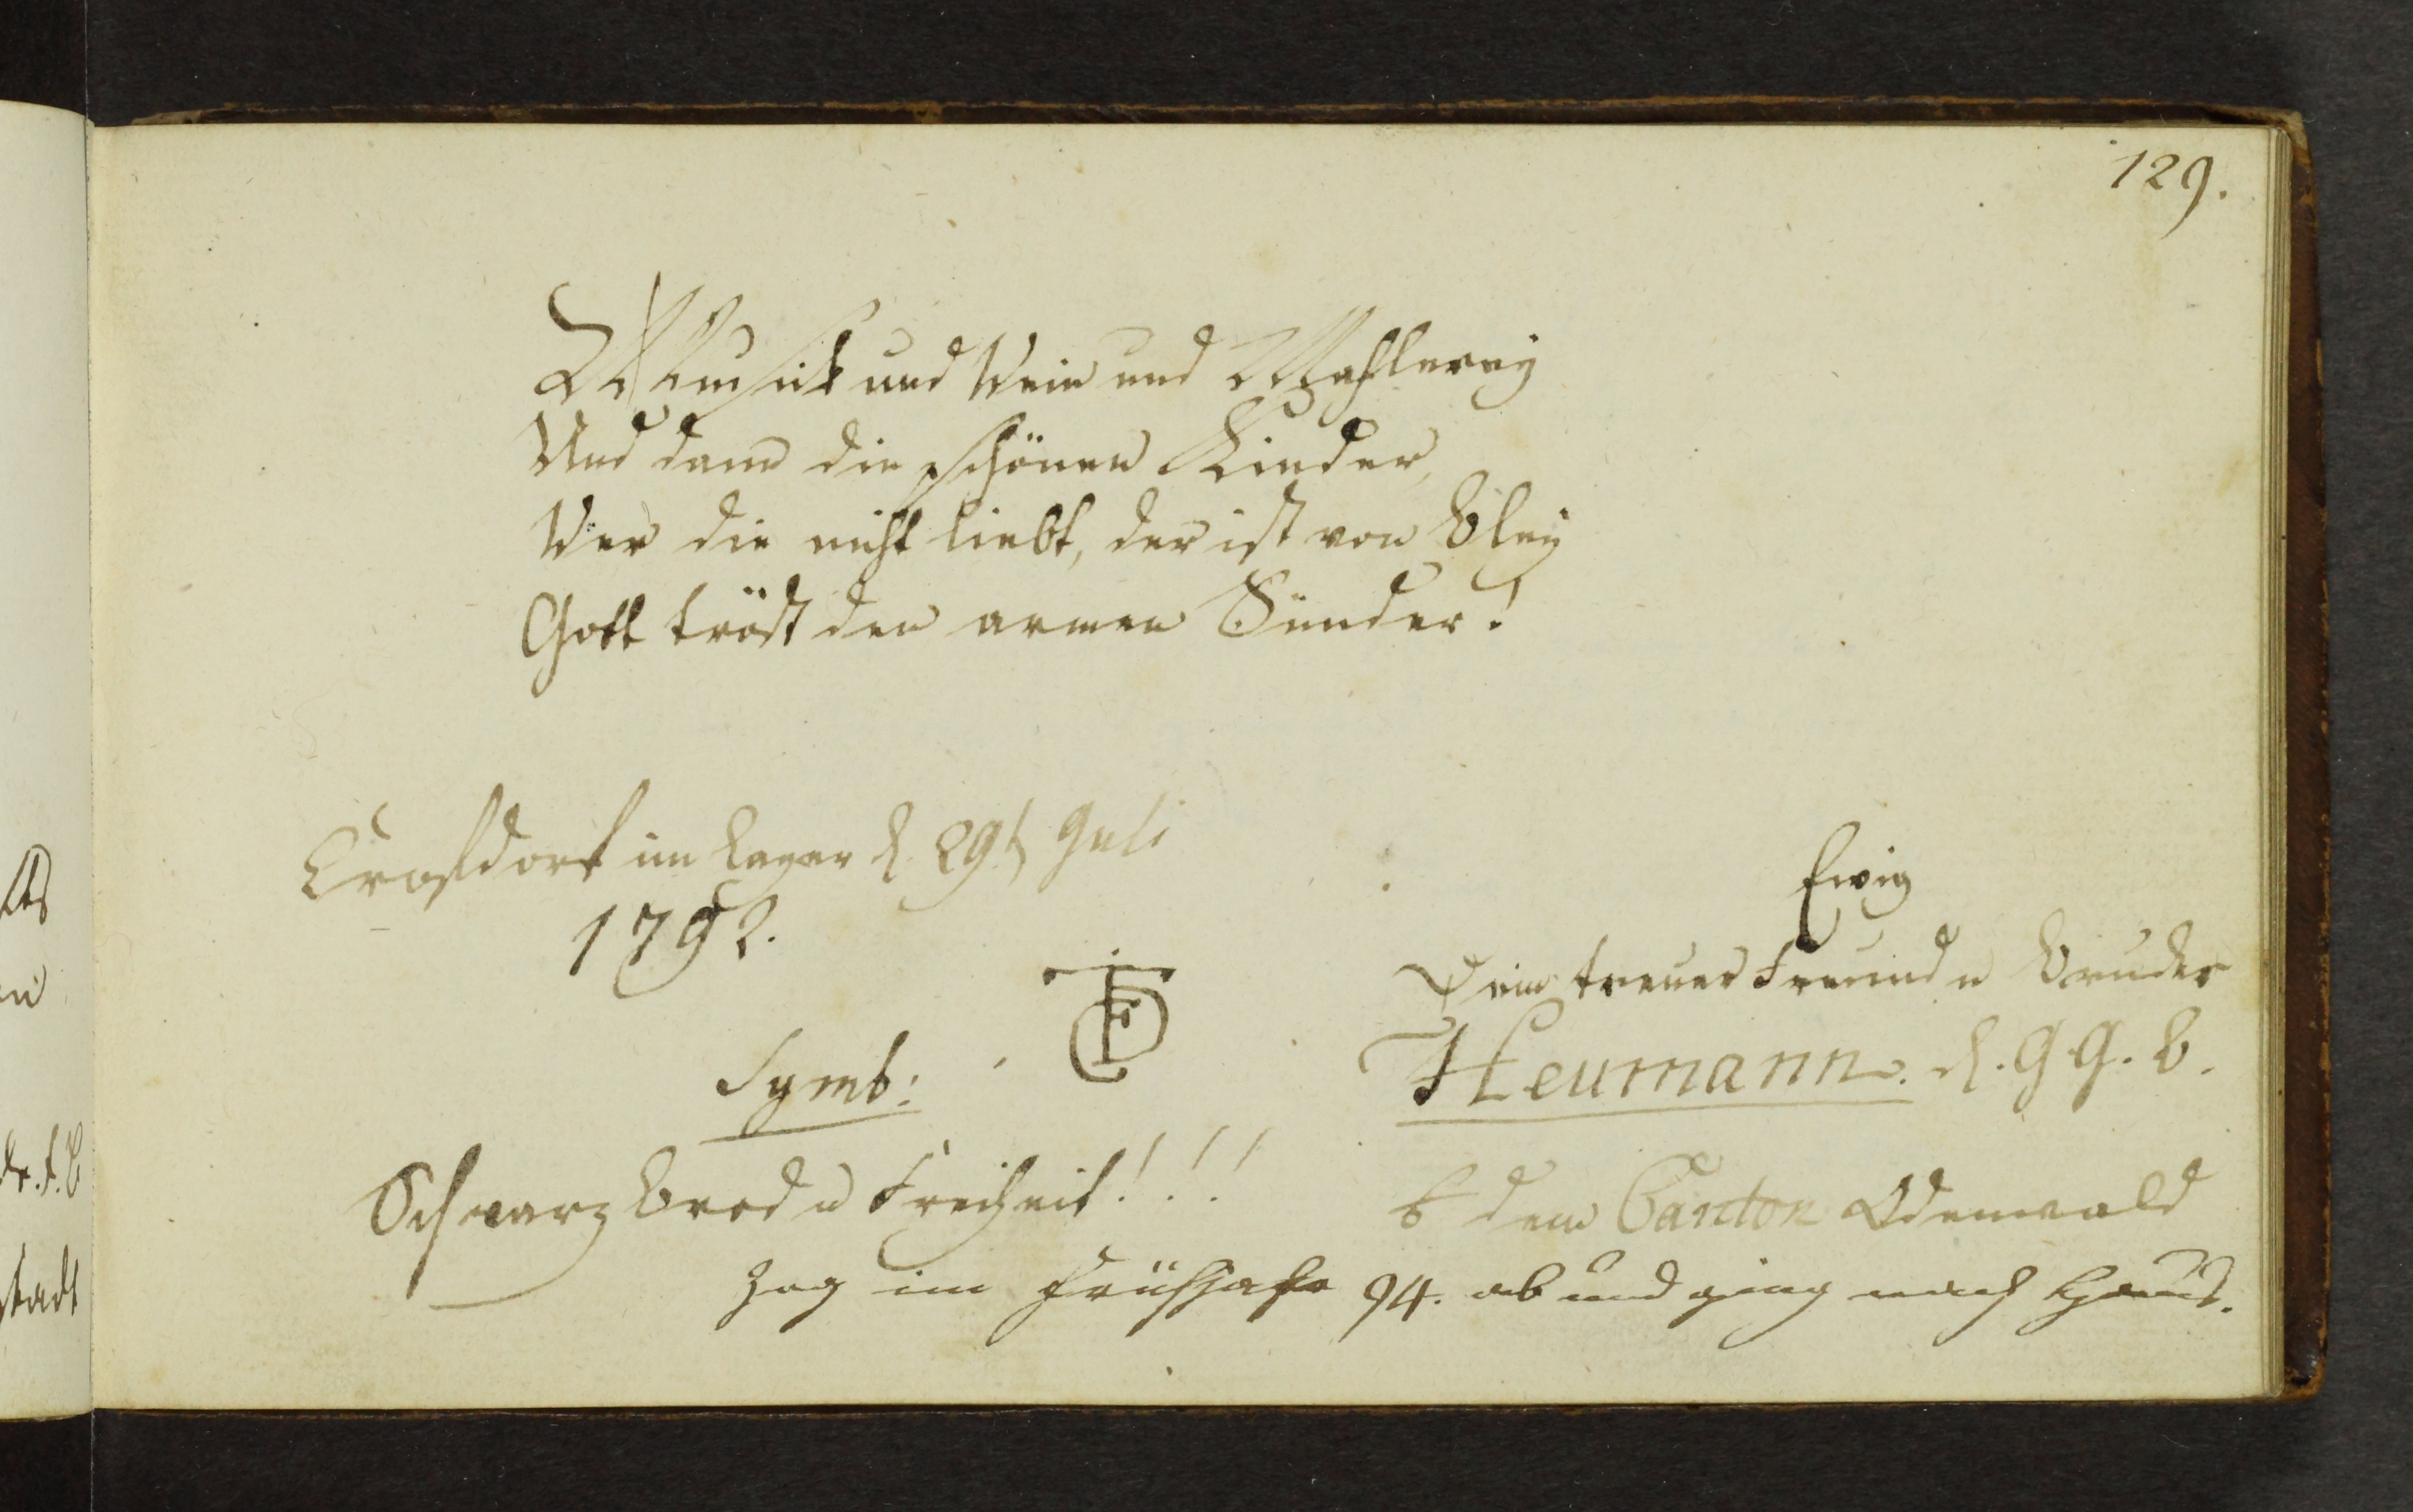 129.
Musick und Wein und Mahlerey
Und dann die schönen Kinder,
Wer die nicht liebt, der ist von Bley
Gott tröst den armen Sünder!
Crofdorf im Lager d. 29t Juli
1792.
Ewig
Dein treuer Freund u Bruder
Heumann. d. G G. B.
Symb:
Schwarz Brod u Freiheit!!!
b dem Canton Odenwald
zog im Frühjahr 94. ab und ging nach Haus.